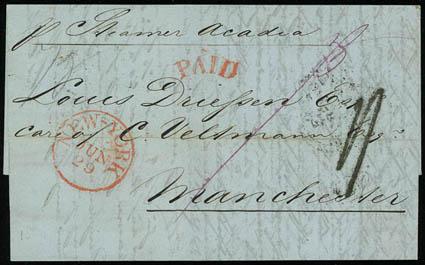 p Steamer Acadia
PAID
Louis Driessen Esq
care of C. Veltmann Esqr
NEW-YORK
JUN
29
Manchester